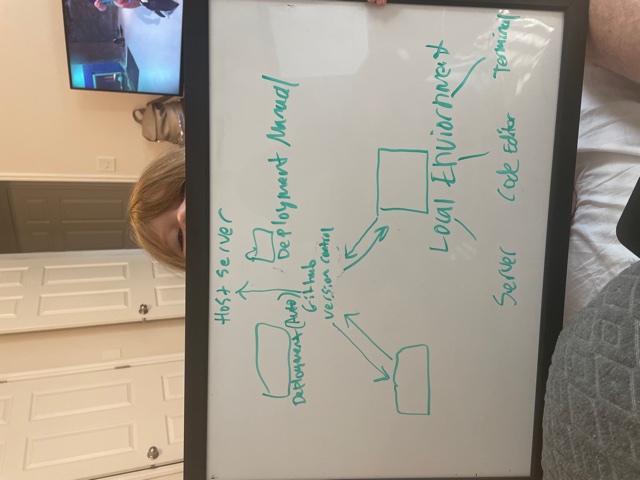 Host Server
Deployment (Auto)
Deployment Manual
Github
version control
Local Enviornment
Server
Code Editor
Terminal